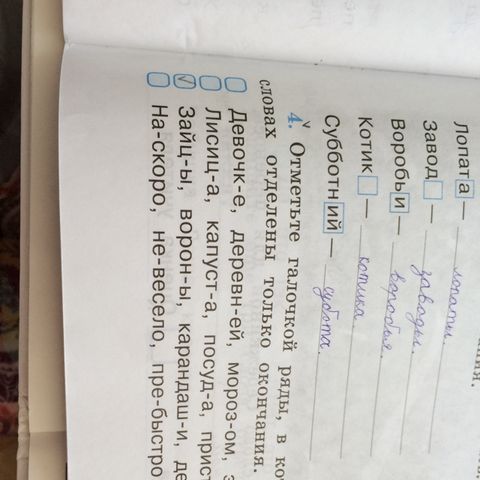 ния.
Лопата — лопаты.
Завод — заводы.
Воробьи — воробья.
Котик — котика.
Субботний — субота.
4. Отметьте галочкой ряды, в ко
словах отделены только окончания.
Девочк-е, деревн-ей, мороз-ом, з
Лисиц-а, капуст-а, посуд-а, прист
Зайц-ы, ворон-ы, карандаш-и, де
На-скоро, не-весело, пре-быстро